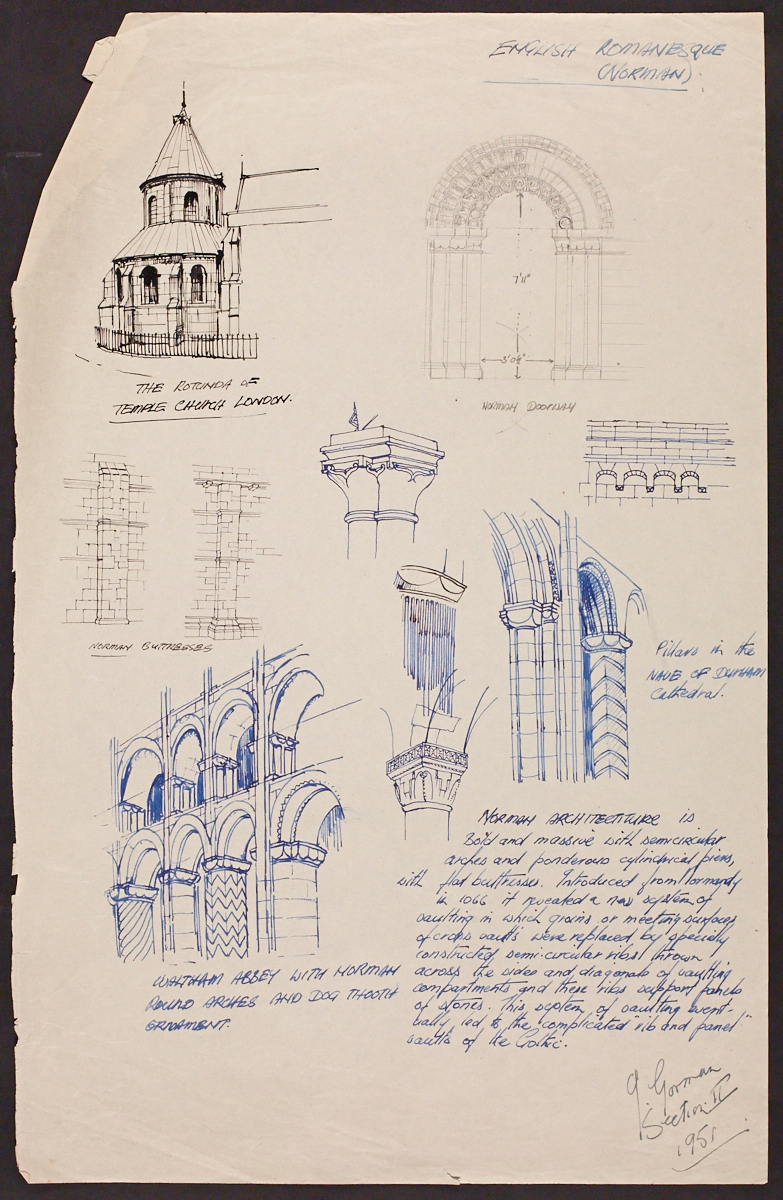 ENGLISH ROMANESQUE
(NORMAN).
THE ROTUNDA OF
TEMPLE CHURCH LONDON.
7'11"
3'0½"
NORMAN DOORWAY
NORMAN BUTTRESSES
Pillars in the
NAVE OF DURHAM
Cathedral.
WALTHAM ABBEY WITH NORMAN
ROUND ARCHES AND DOG THOOTH
ORNAMENT.
NORMAN ARCHITECTITURE is
Bold and massive with semicircular
arches and ponderous cylindrical piers,
with flat buttresses. Introduced from Normandy
in 1066 it revealed a new system of
vaulting in which groins or meeting surfaces
of cross vaults were replaced by specially
constructed semi-circular ribs thrown
across the sides and diagonals of vaulting
compartments and these ribs support panels
of stones. This system of vaulting event-
ually led to the complicated "rib and panel"
vaults of the Gothic.
G. Gorman
Section II
1951